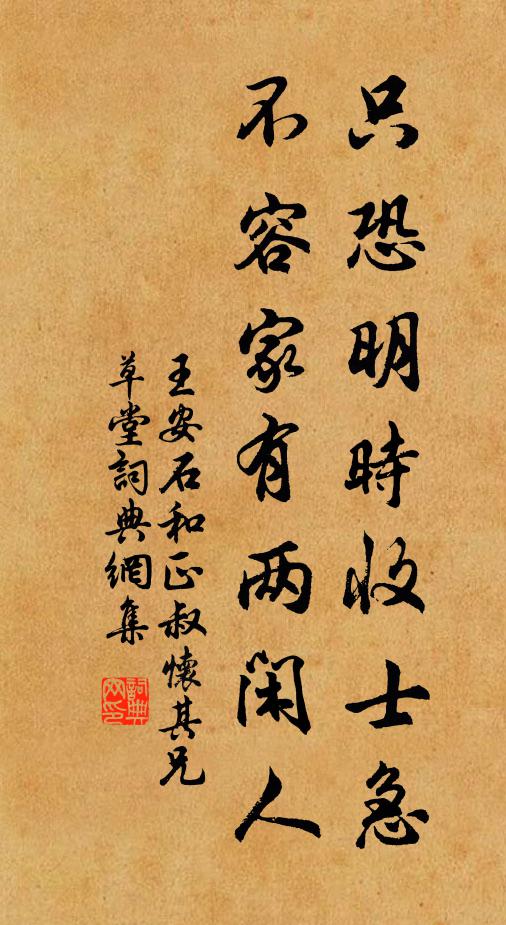 只恐明時收士急
不容家有两閑人
王安石和正叔懷其兄
草堂詞典網集
詞典網印